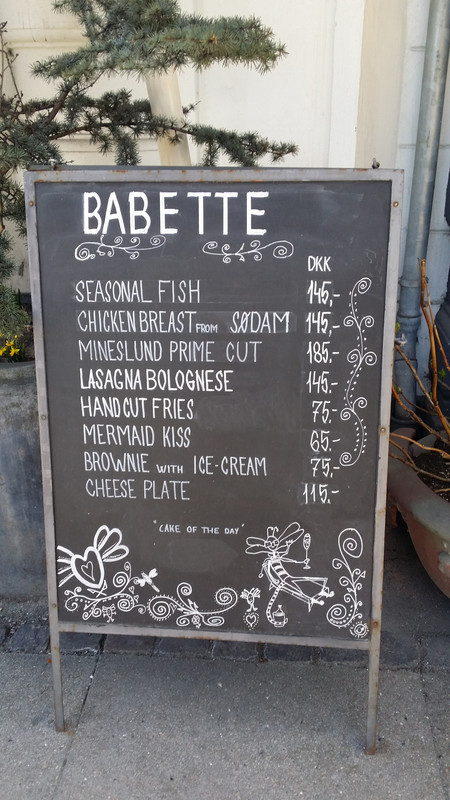 BABETTE
DKK
SEASONAL FISH 145,-
CHICKEN BREAST FROM SØDAM 145,-
MINESLUND PRIME CUT 185,-
LASAGNA BOLOGNESE 145,-
HANDCUT FRIES 75,-
MERMAID KISS 65,-
BROWNIE WITH ICE-CREAM 75,-
CHEESE PLATE 115,-
"CAKE OF THE DAY"